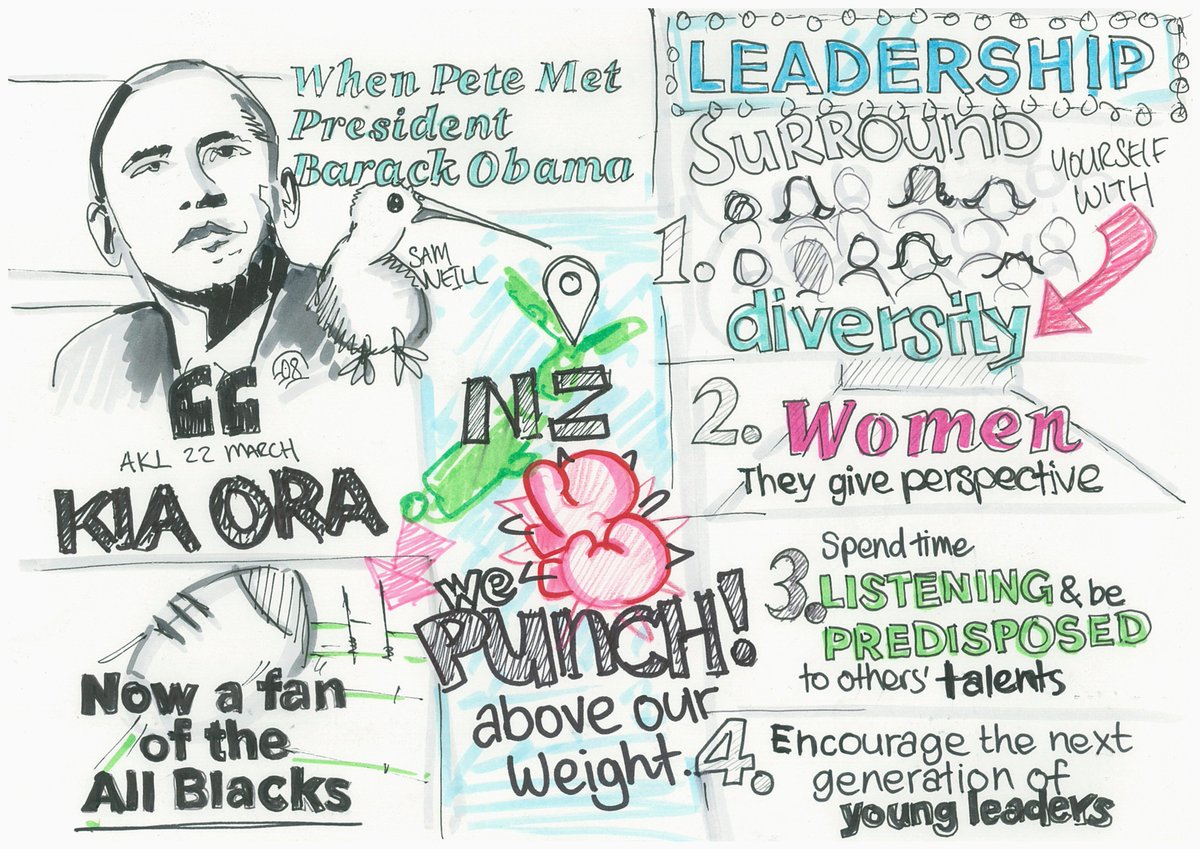 When Pete Met
President
Barack Obama
SAM
WEILL
2018
AKL 22 MARCH
KIA ORA
Now a fan
of the
All Blacks
NZ
we
PUNCH!
above our
weight.
LEADERSHIP
SURROUND
YOURSELF
WITH
1.
diversity
2. Women
They give perspective
3. Spend time
LISTENING & be
PREDISPOSED
to others' talents
4. Encourage the next
generation of
young leaders